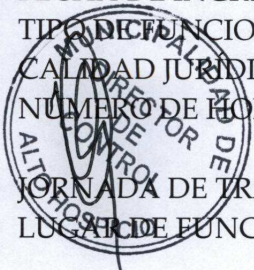 TIPO DE FUNCIO
CALIDAD JURÍDI
NÚMERO DE HO
JORNADA DE TRA
LUGAR DE FUNC
MUNICIPALIDAD DE
ALTO HOSPICIO
DIRECTOR
DE
CONTROL